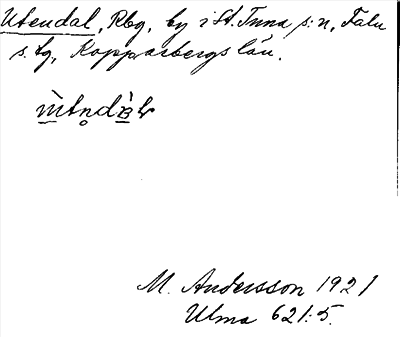 Utendal, Rbg, by i St. Tuna s:n, Falu
s. tg, Kopparbergs län.
M. Andersson 1921
Ulma 621:5.